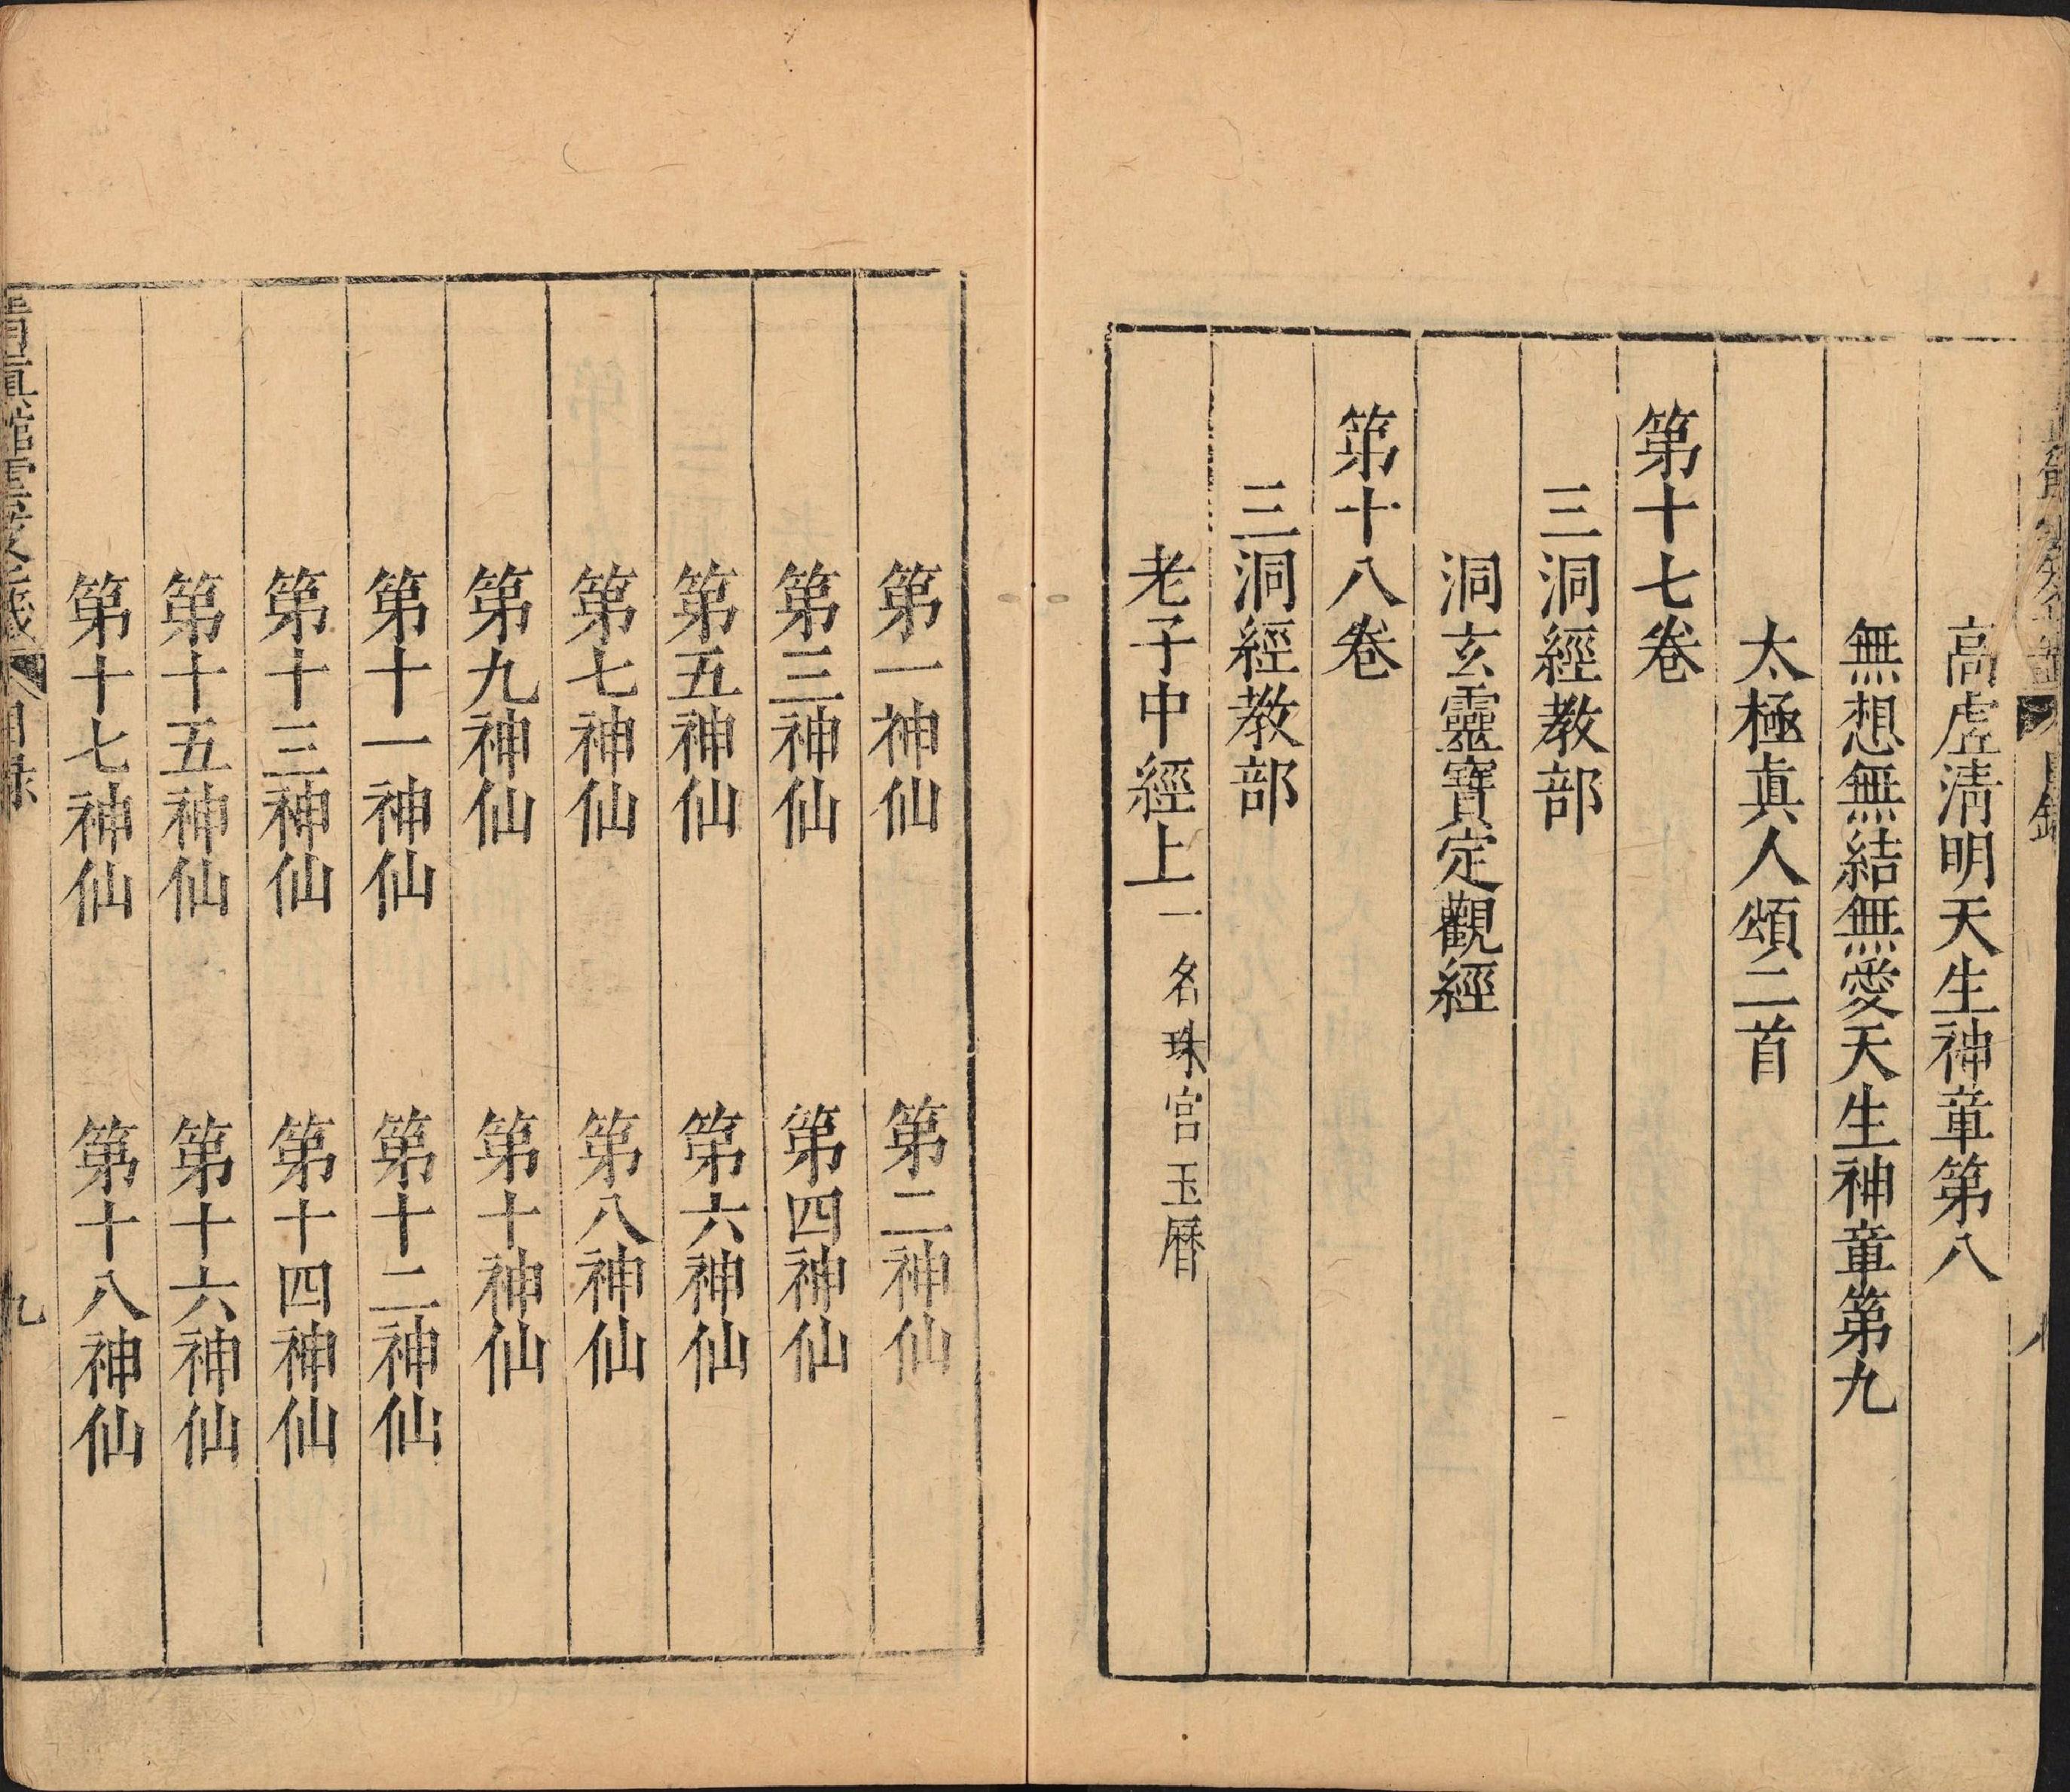 目錄
八
高虛清明天生神章第八
無想無結無愛天生神童第九
太極眞人頌二首
第十七卷
三洞經教部
洞玄靈寶定觀經
第十八卷
三洞經教部
老子中經上一名珠宮玉曆
第一神仙 第二神仙
第三神仙 第四神仙
第五神仙 第六神仙
第七神仙 第八神仙
第九神仙 第十神仙
第十一神仙 第十二神仙
第十三神仙 第十四神仙
第十五神仙 第十六神仙
第十七神仙 第十八神仙
清眞館雲笈七籤 目録
九